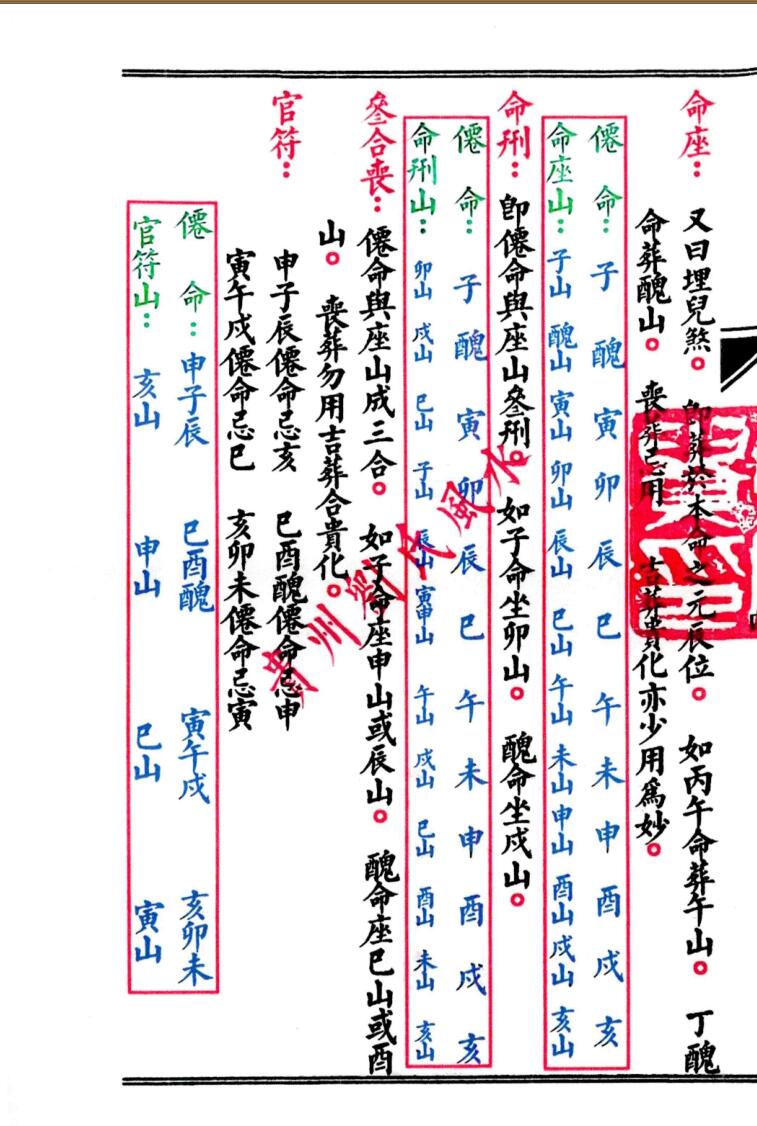 命座：又曰埋兒煞。即葬於本命之元辰位。如丙午命葬午山。丁醜
命葬醜山。喪葬忌用 吉葬貴化亦少用爲妙。
僊命：子 醜 寅 卯 辰 巳 午 未 申 酉 戌 亥
命座山：子山 醜山 寅山 卯山 辰山 巳山 午山 未山 申山 酉山 戌山 亥山
命刑：即僊命與座山叄刑。如子命坐卯山。醜命坐戌山。
僊命：子 醜 寅 卯 辰 巳 午 未 申 酉 戌 亥
命刑山：卯山 戌山 巳山 子山 辰山 寅申山 午山 戌山 巳山 酉山 未山 亥山
叄合喪：僊命與座山成三合。如子命座申山或辰山。醜命座巳山或酉
山。喪葬勿用吉葬合貴化。
官符：申子辰僊命忌亥 巳酉醜僊命忌申
寅午戌僊命忌巳 亥卯未僊命忌寅
僊命：申子辰 巳酉醜 寅午戌 亥卯未
官符山：亥山 申山 巳山 寅山
貴州劉氏風水